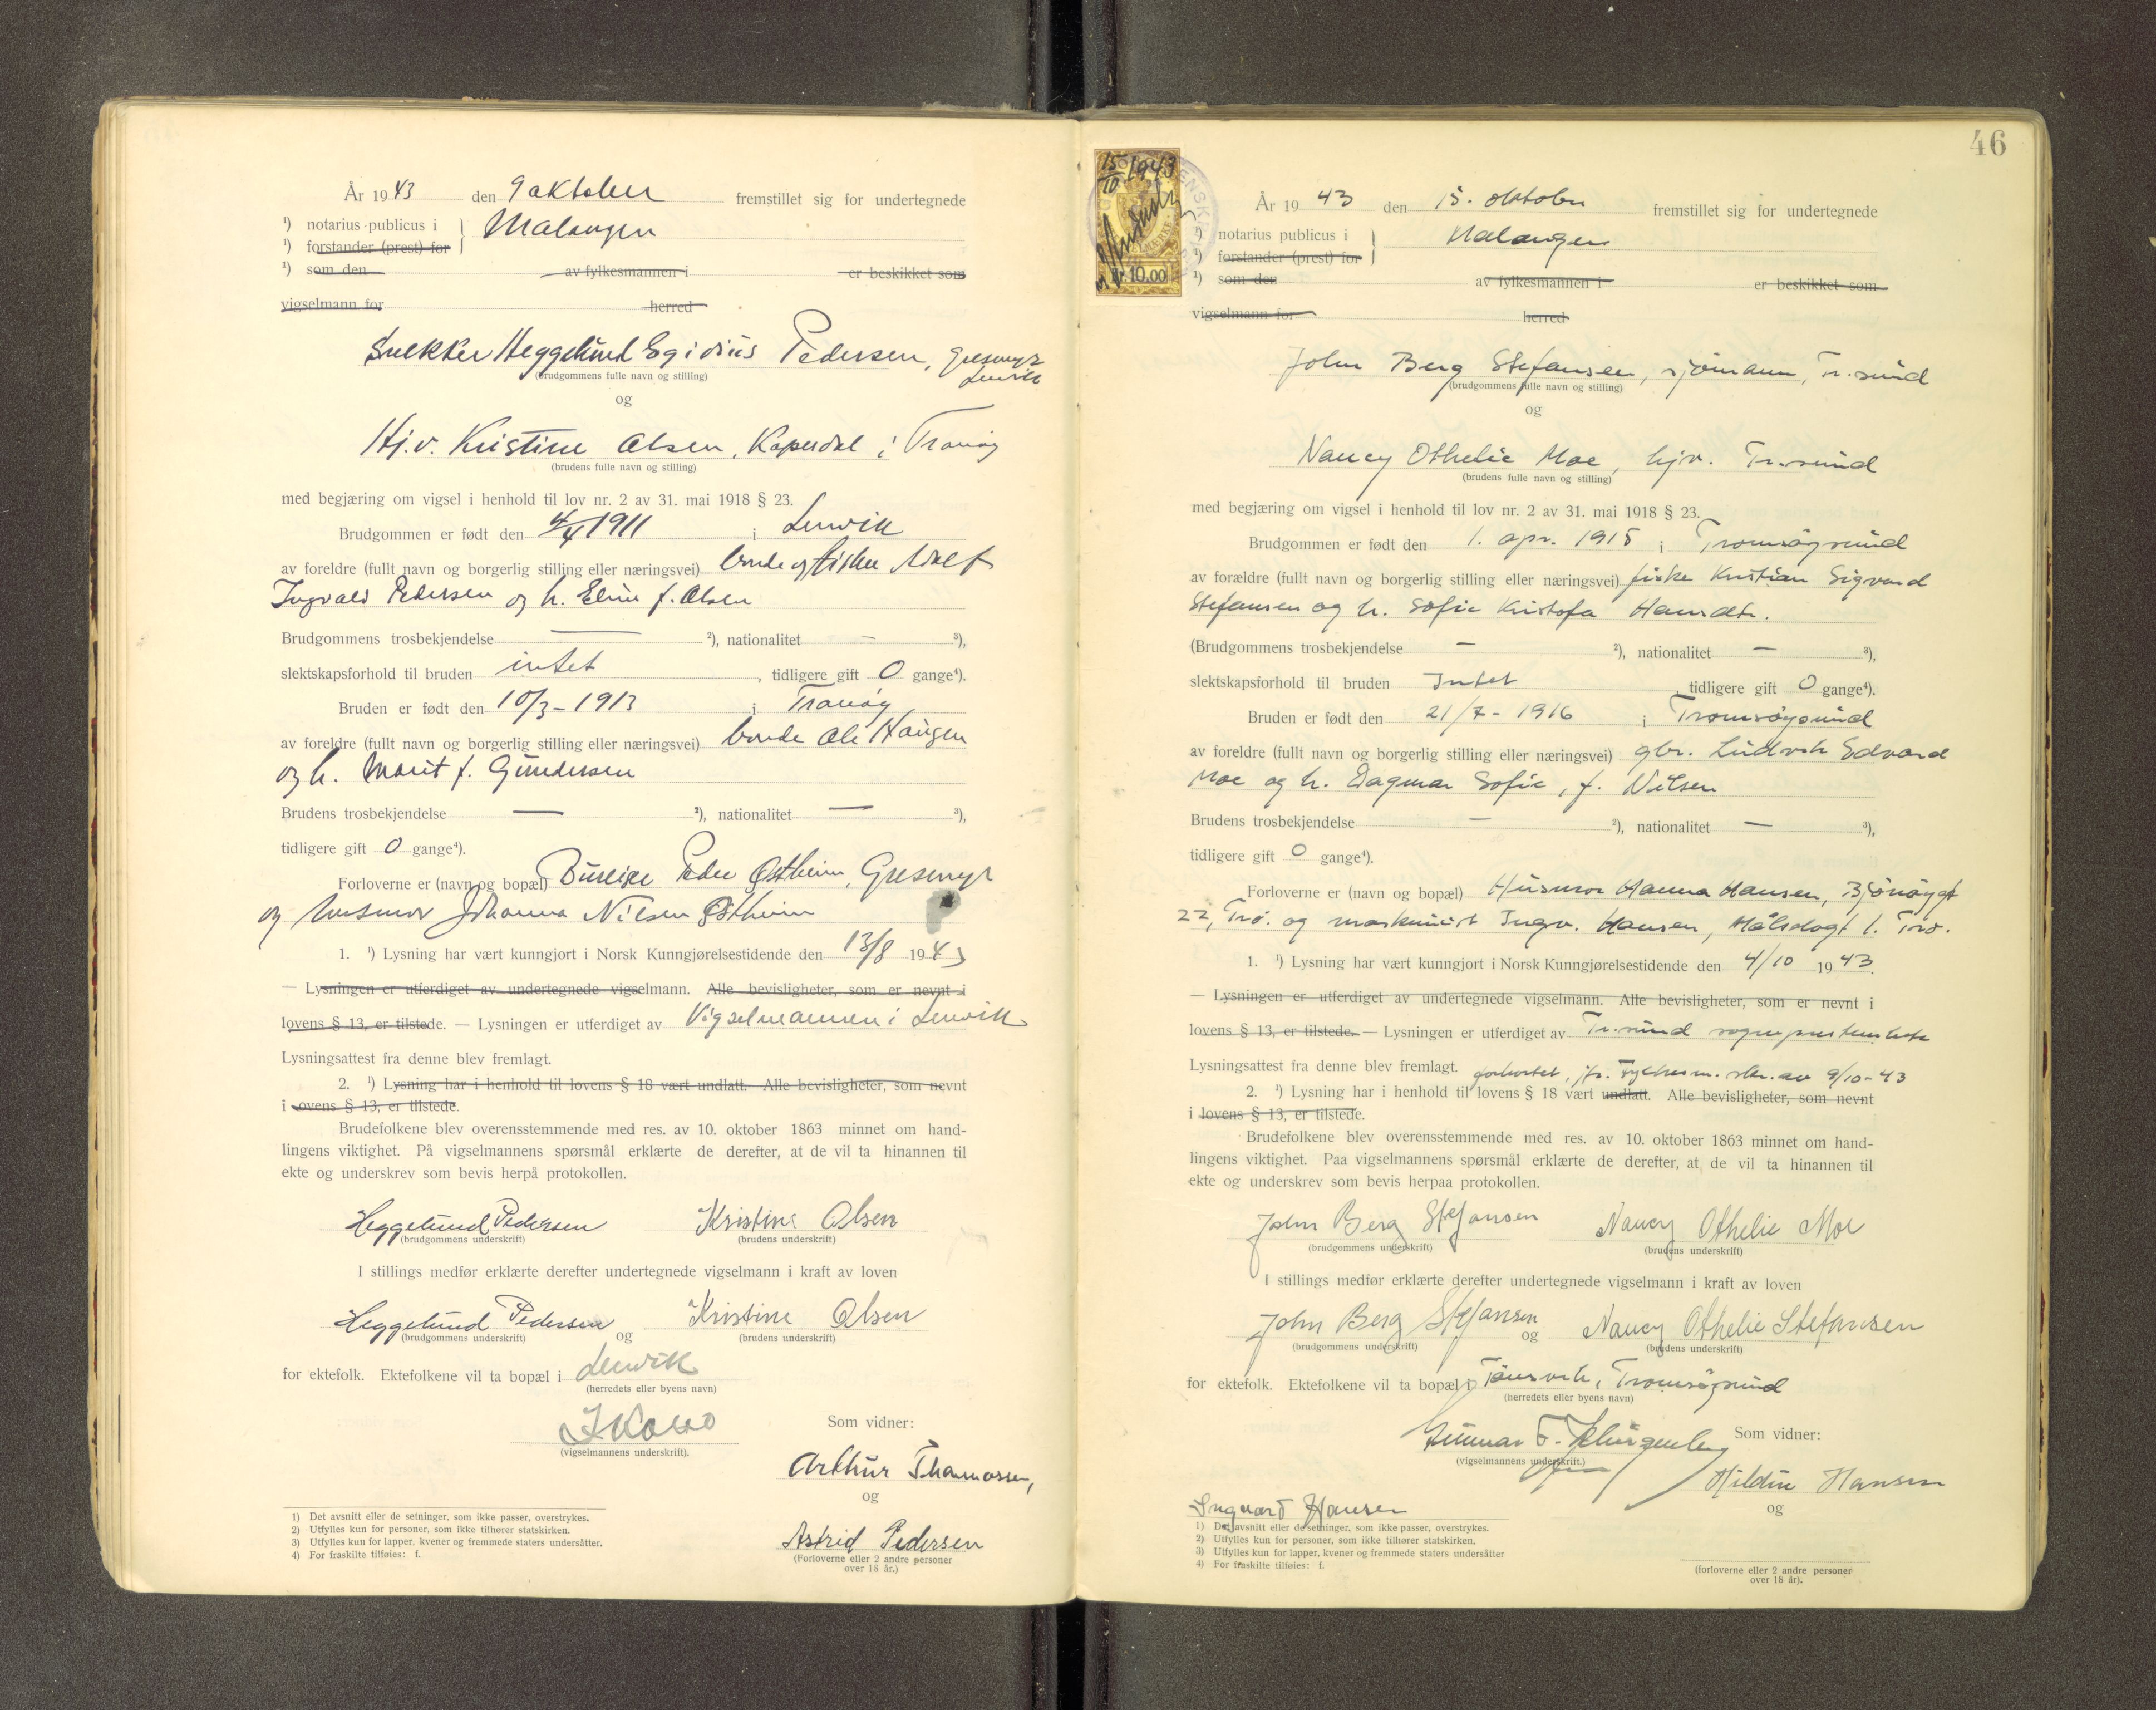 År 1943 den 9 oktober fremstillet sig for undertegnede
¹) notarius publicus i } Malangen
¹) forstander (prest) for
¹) som den av fylkesmannen i er beskikket som
vigselmann for herred
Snekker Heggelund Egidius Pedersen, Gresmyr
Lenvik
(brudgommens fulle navn og stilling)
og
Hj.v. Kristine Olsen, Kaperdal i Tranøy
(brudens fulle navn og stilling)
med begjæring om vigsel i henhold til lov nr. 2 av 31. mai 1918 § 23.
Brudgommen er født den 1911 i Lenvik
av foreldre (fullt navn og borgerlig stilling eller næringsvei) bonde og fisker Adolf
Ingvald Pedersen og h. Eline f. Olsen
Brudgommens trosbekjendelse — ²), nationalitet — ³),
slektskapsforhold til bruden intet, tidligere gift 0 gange⁴).
Bruden er født den 10/3 - 1913 i Tranøy
av foreldre (fullt navn og borgerlig stilling eller næringsvei) bonde Ole Haugen
og h. Marit f. Gundersen
Brudens trosbekjendelse — ²), nationalitet — ³),
tidligere gift 0 gange⁴).
Forloverne er (navn og bopæl) Bureiser Peder Østheim, Gresmyr
og husmor Johanna Nilsen Østheim
1. ¹) Lysning har vært kunngjort i Norsk Kunngjørelsestidende den 13/8 1943
— Lysningen er utferdiget av undertegnede vigselmann. Alle bevisligheter, som er nevnt i
lovens § 13, er tilstede. — Lysningen er utferdiget av Vigselmannen i Lenvik
Lysningsattest fra denne blev fremlagt.
2. ¹) Lysning har i henhold til lovens § 18 vært undlatt. Alle bevisligheter, som nevnt
i lovens § 13, er tilstede.
Brudefolkene blev overensstemmende med res. av 10. oktober 1863 minnet om hand-
lingens viktighet. På vigselmannens spørsmål erklærte de derefter, at de vil ta hinannen til
ekte og underskrev som bevis herpå protokollen.
Heggelund Pedersen Kristine Olsen
(brudgommens underskrift) (brudens underskrift)
I stillings medfør erklærte derefter undertegnede vigselmann i kraft av loven
Heggelund Pedersen og Kristine Olsen
(brudgommens underskrift) (brudens underskrift)
for ektefolk. Ektefolkene vil ta bopæl i Lenvik
(herredets eller byens navn)
(vigselmannens underskrift).
Som vidner:
Arthur Thomassen,
og
Astrid Pedersen
(Forloverne eller 2 andre personer
over 18 år.)
1) Det avsnitt eller de setninger, som ikke passer, overstrykes.
2) Utfylles kun for personer, som ikke tilhører statskirken.
3) Utfylles kun for lapper, kvener og fremmede staters undersåtter.
4) For fraskilte tilføies: f.
46
15/10 1943
kr. 10.00
År 1943 den 15. oktober fremstillet sig for undertegnede
¹) notarius publicus i } Malangen
¹) forstander (prest) for
¹) som den av fylkesmannen i er beskikket som
vigselmann for herred
John Berg Stefansen, sjömann, Tr.sund
(brudgommens fulle navn og stilling)
og
Nancy Othelie Moe, hjv. Tr.sund
(brudens fulle navn og stilling)
med begjæring om vigsel i henhold til lov nr. 2 av 31. mai 1918 § 23.
Brudgommen er født den 1. apr. 1915 i Tromsøysund
av forældre (fullt navn og borgerlig stilling eller næringsvei) fisker Kristian Sigvard
Stefansen og h. Sofie Kristofa Hamdt.
(Brudgommens trosbekjendelse — ²), nationalitet — ³),
slektskapsforhold til bruden Intet, tidligere gift 0 gange⁴).
Bruden er født den 21/7 - 1916 i Tromsøysund
av foreldre (fullt navn og borgerlig stilling eller næringsvei) gbr. Ludvik Edvard
Moe og h. Dagmar Sofie, f. Nilsen
Brudens trosbekjendelse — ²), nationalitet — ³),
tidligere gift 0 gange⁴).
Forloverne er (navn og bopæl) Husmor Hanna Hansen, Bjørnøygt
22, Trø. og maskinist Ingv. Hansen, Målsdogt 1. Trø.
1. ¹) Lysning har vært kunngjort i Norsk Kunngjørelsestidende den 4/10 1943.
— Lysningen er utferdiget av undertegnede vigselmann. Alle bevisligheter, som er nevnt i
lovens § 13, er tilstede. — Lysningen er utferdiget av Tr.sund sogneprestembete
Lysningsattest fra denne blev fremlagt.
forkortet, jfr. Fylkesm. skr. av 9/10-43
2. ¹) Lysning har i henhold til lovens § 18 vært undlatt. Alle bevisligheter, som nevnt
i lovens § 13, er tilstede.
Brudefolkene blev overensstemmende med res. av 10. oktober 1863 minnet om hand-
lingens viktighet. Paa vigselmannens spørsmål erklærte de derefter, at de vil ta hinannen til
ekte og underskrev som bevis herpaa protokollen.
John Berg Stefansen Nancy Othelie Moe
(brudgommens underskrift) (brudens underskrift)
I stillings medfør erklærte derefter undertegnede vigselmann i kraft av loven
John Berg Stefansen og Nancy Othelie Stefansen
(brudgommens underskrift) (brudens underskrift)
for ektefolk. Ektefolkene vil ta bopæl i Tønsvik, Tromsøysund
(herredets eller byens navn)
Gunnar F.
(vigselmannens underskrift.)
Som vidner:
Hildur Hansen
og
Ingvard Hansen
(forloverne eller 2 andre personer
over 18 år).
1) Det avsnitt eller de setninger, som ikke passer, overstrykes.
2) Utfylles kun for personer, som ikke tilhører statskirken.
3) Utfylles kun for lapper, kvener og fremmede staters undersåtter
4) For fraskilte tilføies: f.